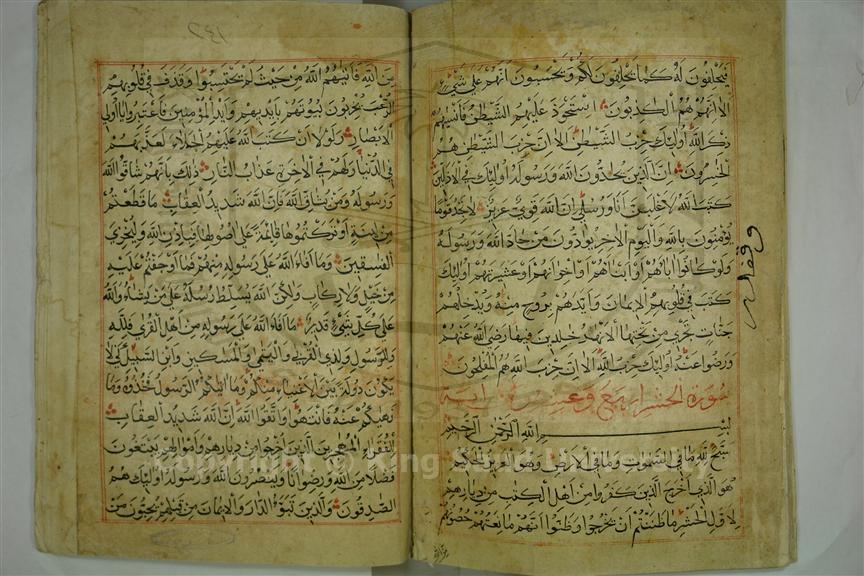 فيحلفون له كما يحلفون لكم ويحسبون انهم على شئ
الا انهم هم الكذبون استحوذ عليهم الشيطن فانسيهم
ذكر الله اوليك حزب الشيطن الا ان حزب الشيطن هم
الخسرون ان الذين يحادون الله ورسوله اوليك في الاذلين
كتب الله لاغلبن انا ورسلي ان الله قوي عزيز لا تجد قوما
يؤمنون بالله واليوم الاخر يوادون من حاد الله ورسوله
ولو كانوا اباهم او ابناهم او اخوانهم او عشيرتهم اوليك
كتب في قلوبهم الايمان وايدهم بروح منه ويدخلهم
جنات تجري من تحتها الانهر خلدين فيها رضي الله عنهم
ورضوا عنه اوليك حزب الله الا ان حزب الله هم المفلحون
سورة الحشر اربع وعشرون اية
بسم الله الرحمن الرحيم
سبح لله ما في السموت وما في الارض وهو العزيز الحكيم
هو الذي اخرج الذين كفروا من اهل الكتب من ديارهم
لاول الحشر ما ظننتم ان يخرجوا وظنوا انهم مانعتهم حصونهم
وقف لله
من الله فاتيهم الله من حيث لم يحتسبوا وقذف في قلوبهم
الرعب يخربون بيوتهم بايديهم وايد المؤمنين فاعتبروا يا اولي
الابصار ولولا ان كتب الله عليهم الجلاء لعذبهم
في الدنيا ولهم في الاخرة عذاب النار ذلك بانهم شاقوا الله
ورسوله ومن يشاق الله فان الله شديد العقاب ما قطعتم
من لينة او تركتموها قايمة على اصولها فباذن الله وليخزي
الفسقين وما افاء الله على رسوله منهم فما اوجفتم عليه
من خيل ولا ركاب ولكن الله يسلط رسله على من يشاء والله
على كل شئ قدير ما افاء الله على رسوله من اهل القرى فلله
وللرسول ولذي القربى واليتمى والمسكين وابن السبيل كي لا
يكون دولة بين الاغنياء منكم وما اتيكم الرسول فخذوه وما
نهيكم عنه فانتهوا واتقوا الله ان الله شديد العقاب
للفقراء المهجرين الذين اخرجوا من ديارهم واموالهم يبتغون
فضلا من الله ورضوانا وينصرون الله ورسوله اوليك هم
الصدقون والذين تبوؤ الدار والايمان من قبلهم يحبون من
Copyright © King Saud University